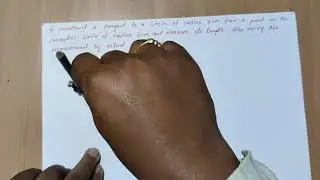 To construct a tangent to a circle of radius 4cm from a point on the
concentric circle of radius 6cm and measure its length. Also verify the
measurement by actual